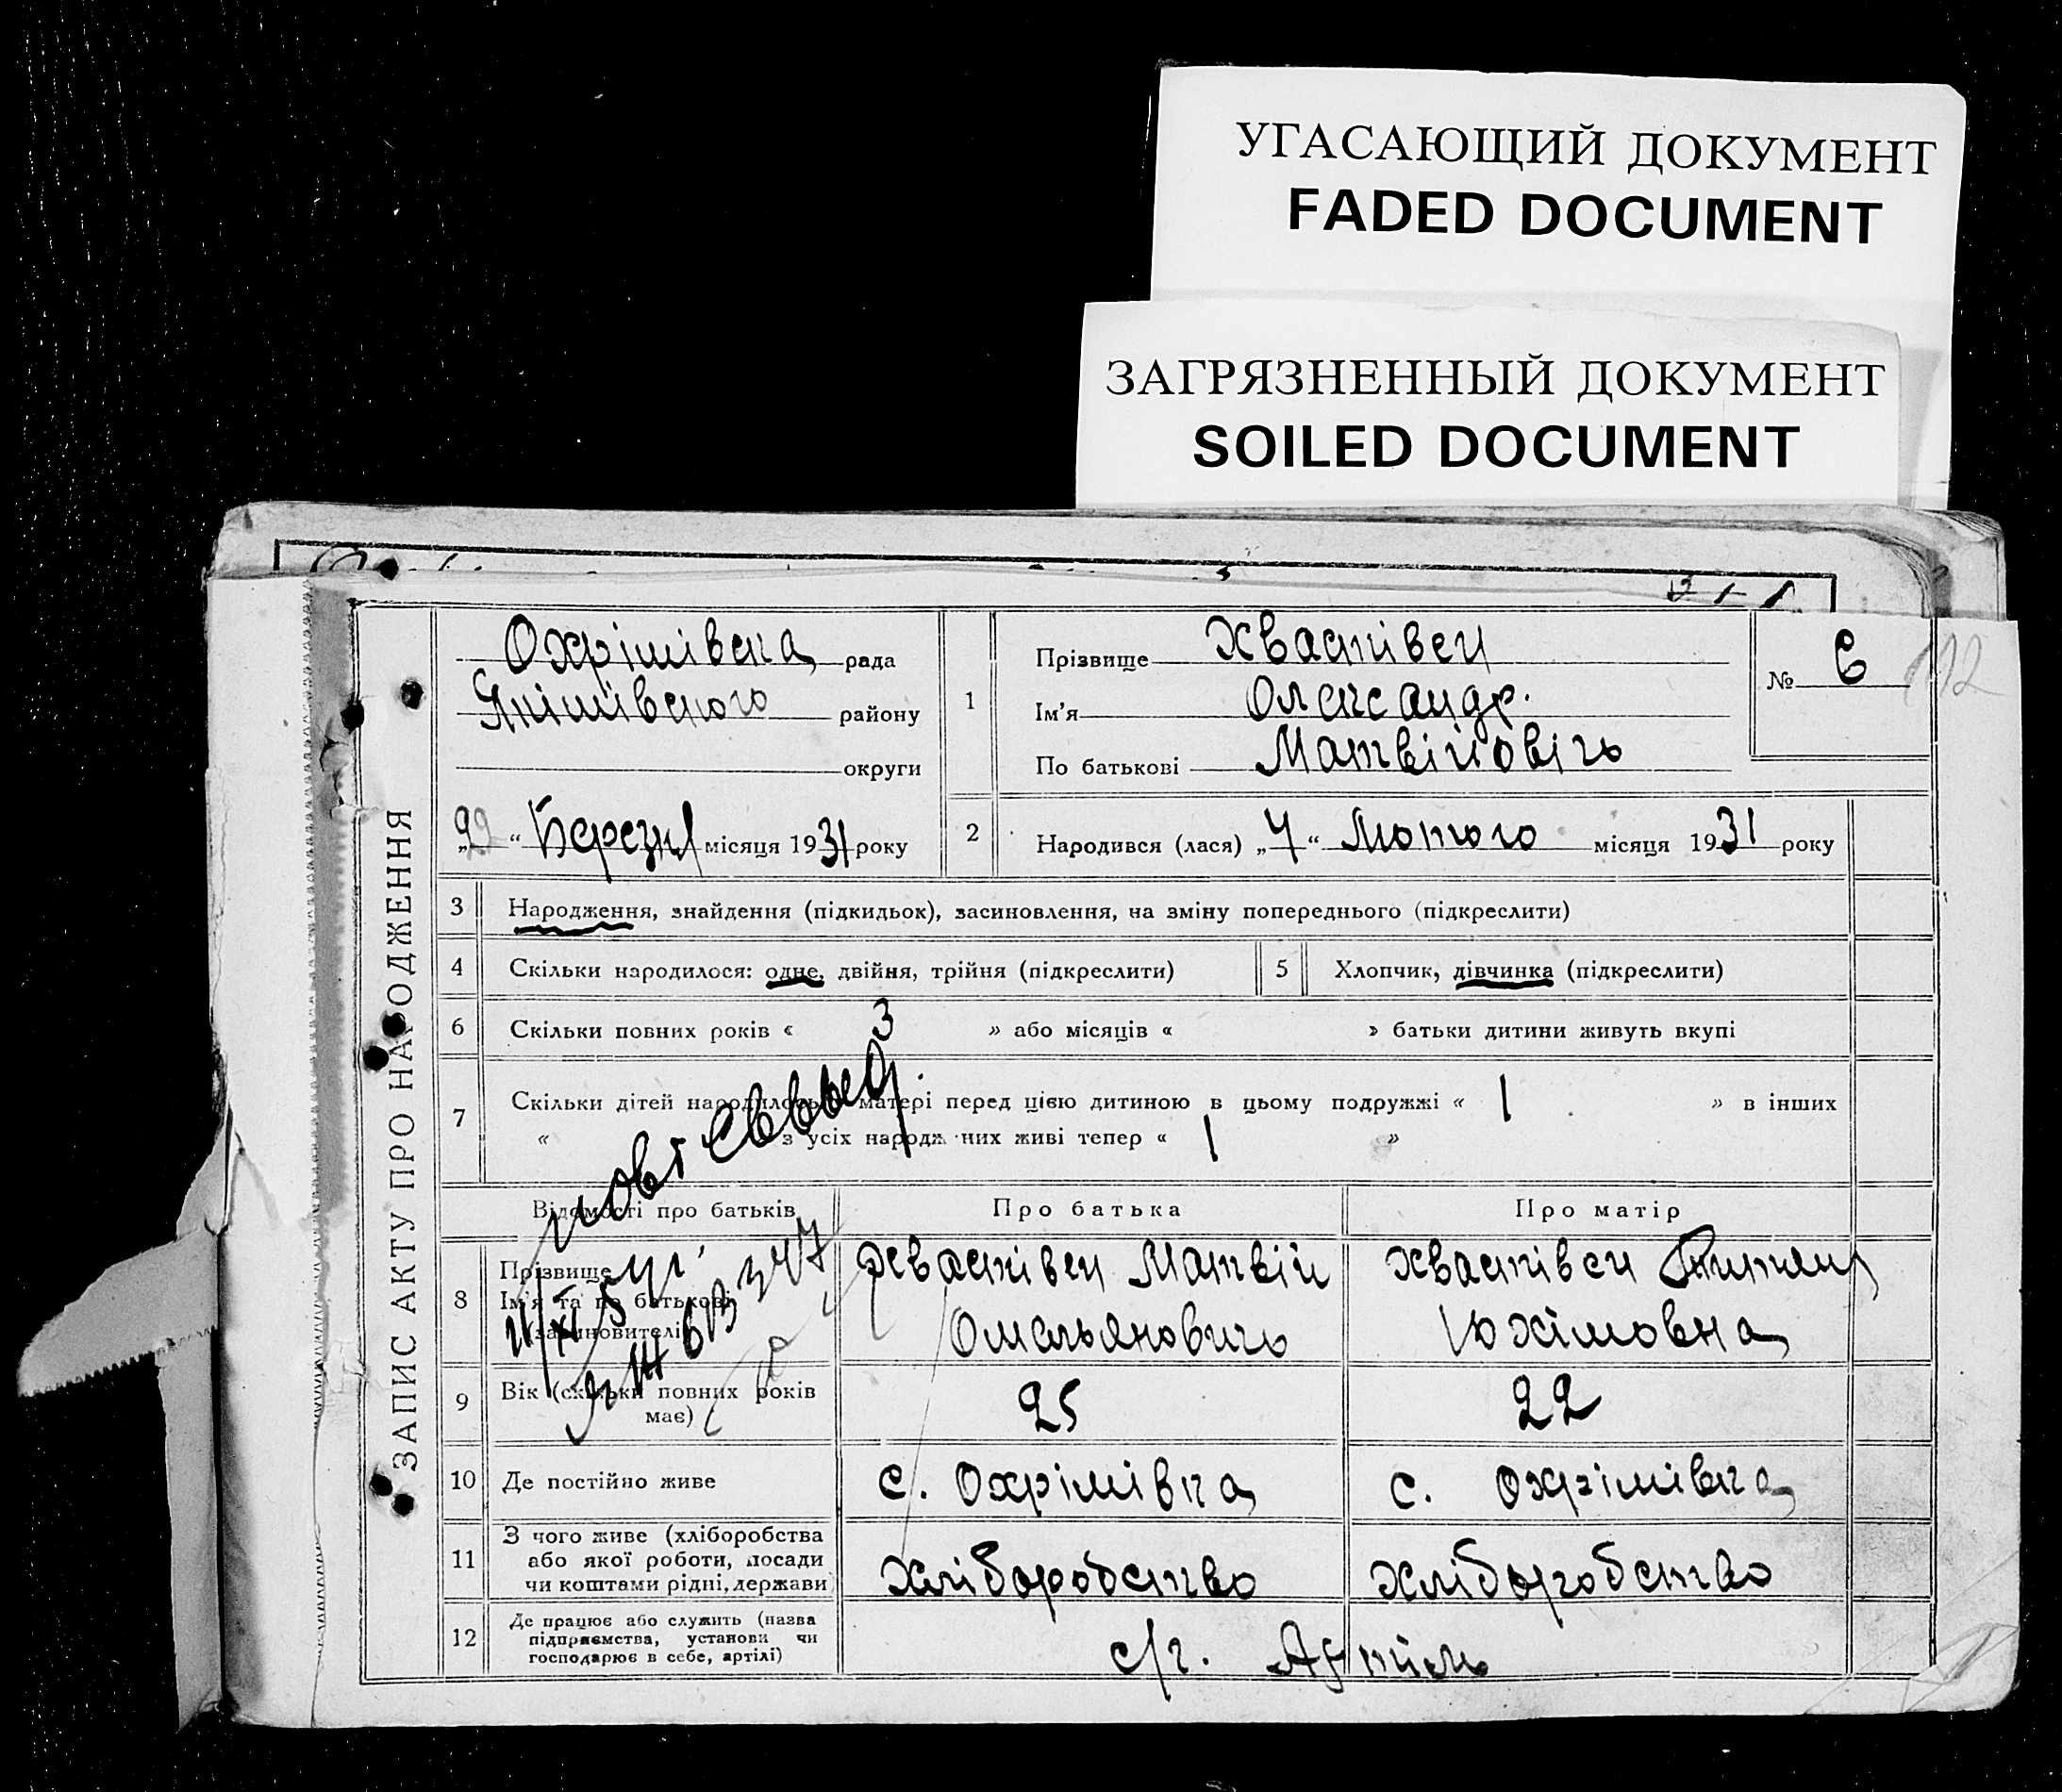 УГАСАЮЩИЙ ДОКУМЕНТ
FADED DOCUMENT
ЗАГРЯЗНЕННЫЙ ДОКУМЕНТ
SOILED DOCUMENT
ЗАПИС АКТУ ПРО НАРОДЖЕННЯ
Охрімівська рада
району
округи
1
Прізвище Хвастівец
Ім'я Олександр.
По батькові Матвійовіч
№ 6
112
„ “ Березня місяця 1931 року
2
Народився (лася) „4“ Лютого місяця 1931 року
3 Народження, знайдення (підкидьок), засиновлення, на зміну попереднього (підкреслити)
4 Скільки народилося: одне, двійня, трійня (підкреслити)
5 Хлопчик, дівчинка (підкреслити)
6 Скільки повних років « 3 » або місяців « » батьки дитини живуть вкупі
7 Скільки дітей народилось у матері перед цією дитиною в цьому подружжі « 1 » в інших
« з усіх народжених живі тепер « 1 »
Відомості про батьків
Про батька
Про матір
8 Прізвище
Ім'я та по батькові
(засиновителі)
Хвастівец Матвій
Омельянович
Хвастівец
Юхімовна
9 Вік (скільки повних років має)
25
22
10 Де постійно живе
с. Охрімівка
с. Охрімівка
11 З чого живе (хліборобства
або якої роботи, посади
чи коштами рідні, держави
Хлібородство
Хліборобство
12 Де працює або служить (назва
підприємства, установи чи
господарює в себе, артілі)
с/г. Артіль